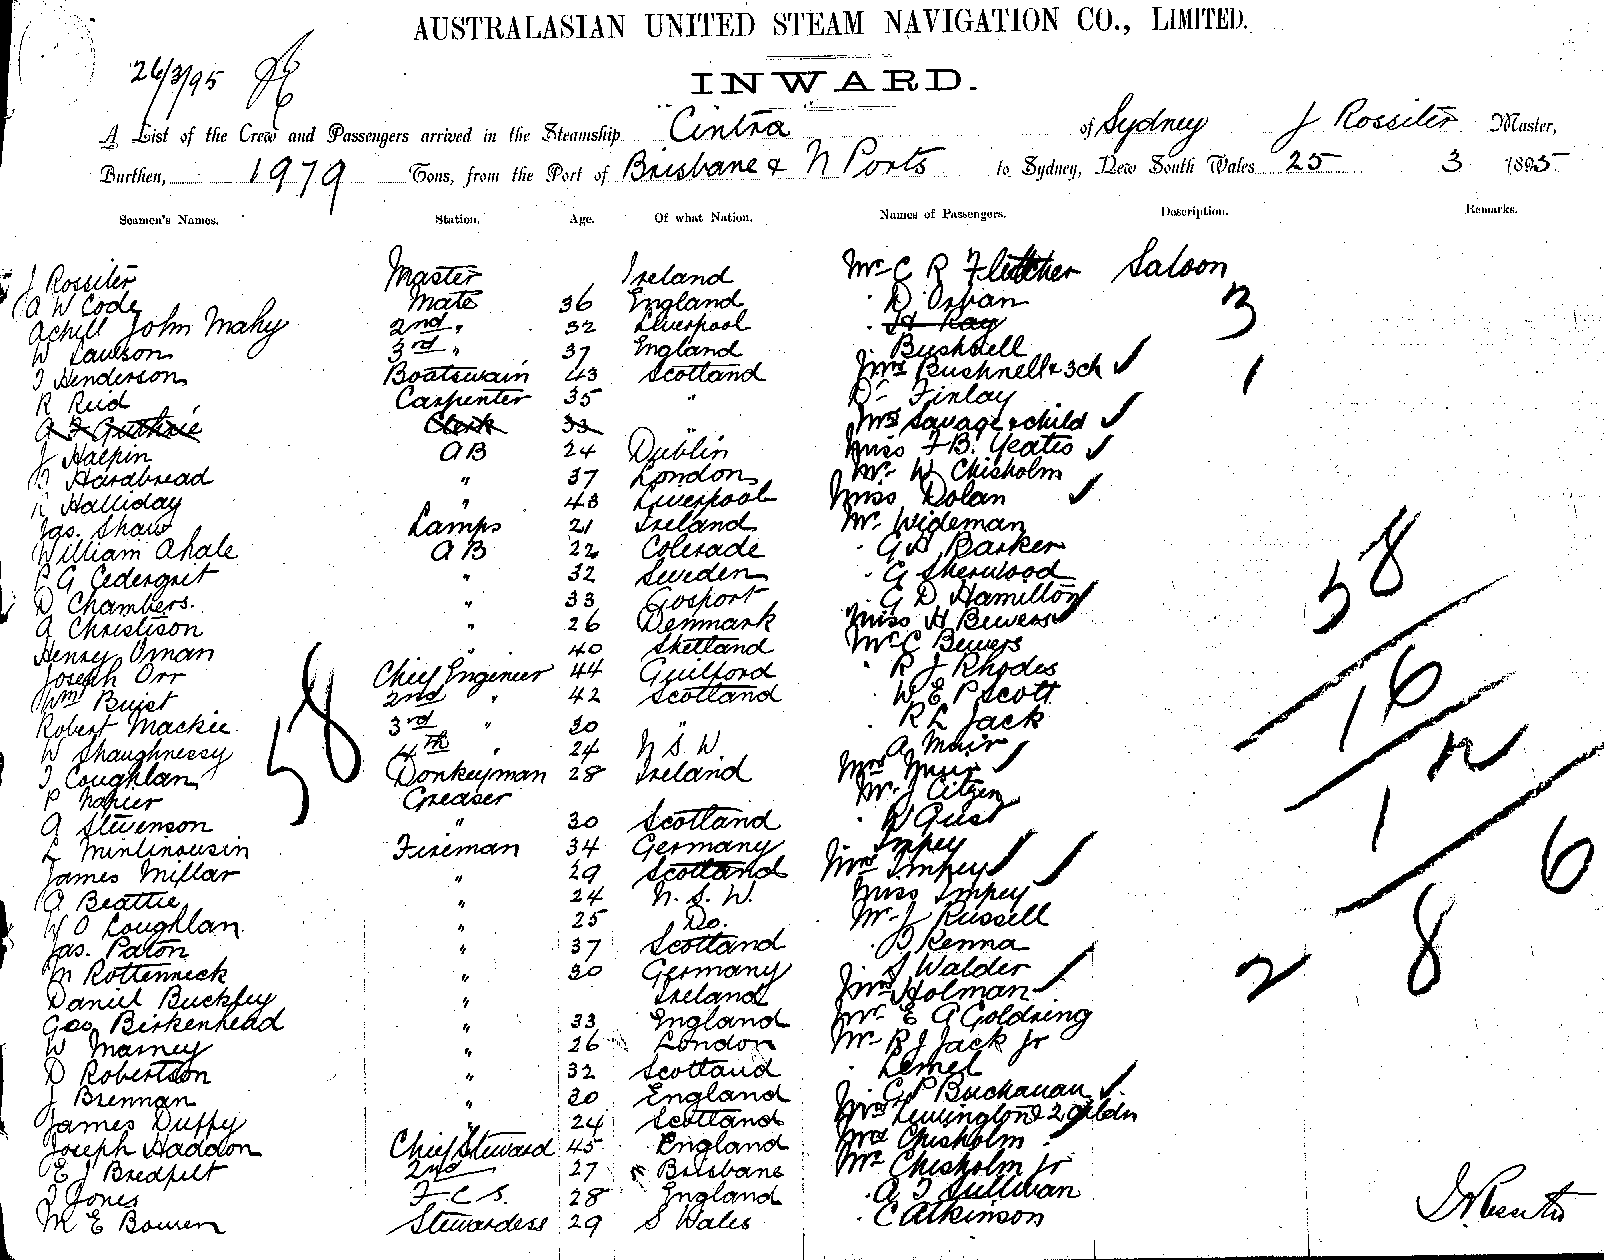 AUSTRALASIAN UNITED STEAM NAVIGATION CO., LIMITED.
26/3/95
INWARD.
A List of the Crew and Passengers arrived in the Steamship Cintra of Sydney J Rossiter Master,
Burthen, 1979 Tons, from the Port of Brisbane & N Ports to Sydney, New South Wales 25 3 1895
Seamen's Names. Station. Age. Of what Nation. Names of Passengers. Description. Remarks.
J Rossiter Master Ireland Mr C R Fletcher Saloon
A W Code Mate 36 England " D Orban 3
Achill John Mahy 2nd " 32 Liverpool " H Kay
W Lawson 3rd " 37 England " Bushnell
T Henderson Boatswain 43 Scotland Mrs Bushnell & 3 ch 1
R Reid Carpenter 35 " Dr Finlay
A F Guthrie Clerk 33 " Mrs Savage & child
J Halpin AB 24 Dublin Miss F B. Yeates
Hardbread " 37 London Mr W Chisholm
Halliday " 48 Liverpool Miss Dolan
Jas. Shaw Lamps 21 Ireland Mr Wideman
William Ahale AB 22 Colerade " G H Barker
C G Cedergret " 32 Sweden " G Sherwood
D Chambers. " 33 Gosport " G D Hamilton
A Christison " 26 Denmark Miss H Bewers
Henry Oman " 40 Shetland Mr C Bewers
Joseph Orr Chief Engineer 44 Guilford " R J Rhodes
Wm Buist 2nd " 42 Scotland " W E P Scott
Robert Mackie 3rd " 30 " " R L Jack
W Shaughnessy 4th " 24 N S W " A Muir
T Coughlan Donkeyman 28 Ireland Mrs Muir
P Napier Greaser Mr J Citzen
A Stevenson " 30 Scotland " R Gust
L Mintinousin Fireman 34 Germany " Impey
James Millar " 29 Scotland Mrs Impey
A Beattie " 24 N. S. W. Miss Impey
W O Loughlan " 25 Do. Mr J Russell
Jas. Paton " 37 Scotland " Kenna
M Rottenneck " 30 Germany " S Walder
Daniel Buckley " Ireland Mrs Holman
Geo Birkenhead " 33 England Mr E G Goldring
W Marney " 26 London Mr R J Jack Jr
D Robertson " 32 Scotland " Lemel
J Brennan " 30 England " G P Buchanan
James Duffy " 24 Scotland Mrs Lewington & 2 childn
Joseph Haddon Chief Steward 45 England Mrs Chisholm
E J Bredfelt 2nd 27 Brisbane Mr Chisholm Jr
T Jones F. C. S. 28 England " A T Sullivan
M E Bowen Stewardess 29 S Wales " C Atkinson
58
58
16
12
1 6
2 8
J Rossiter